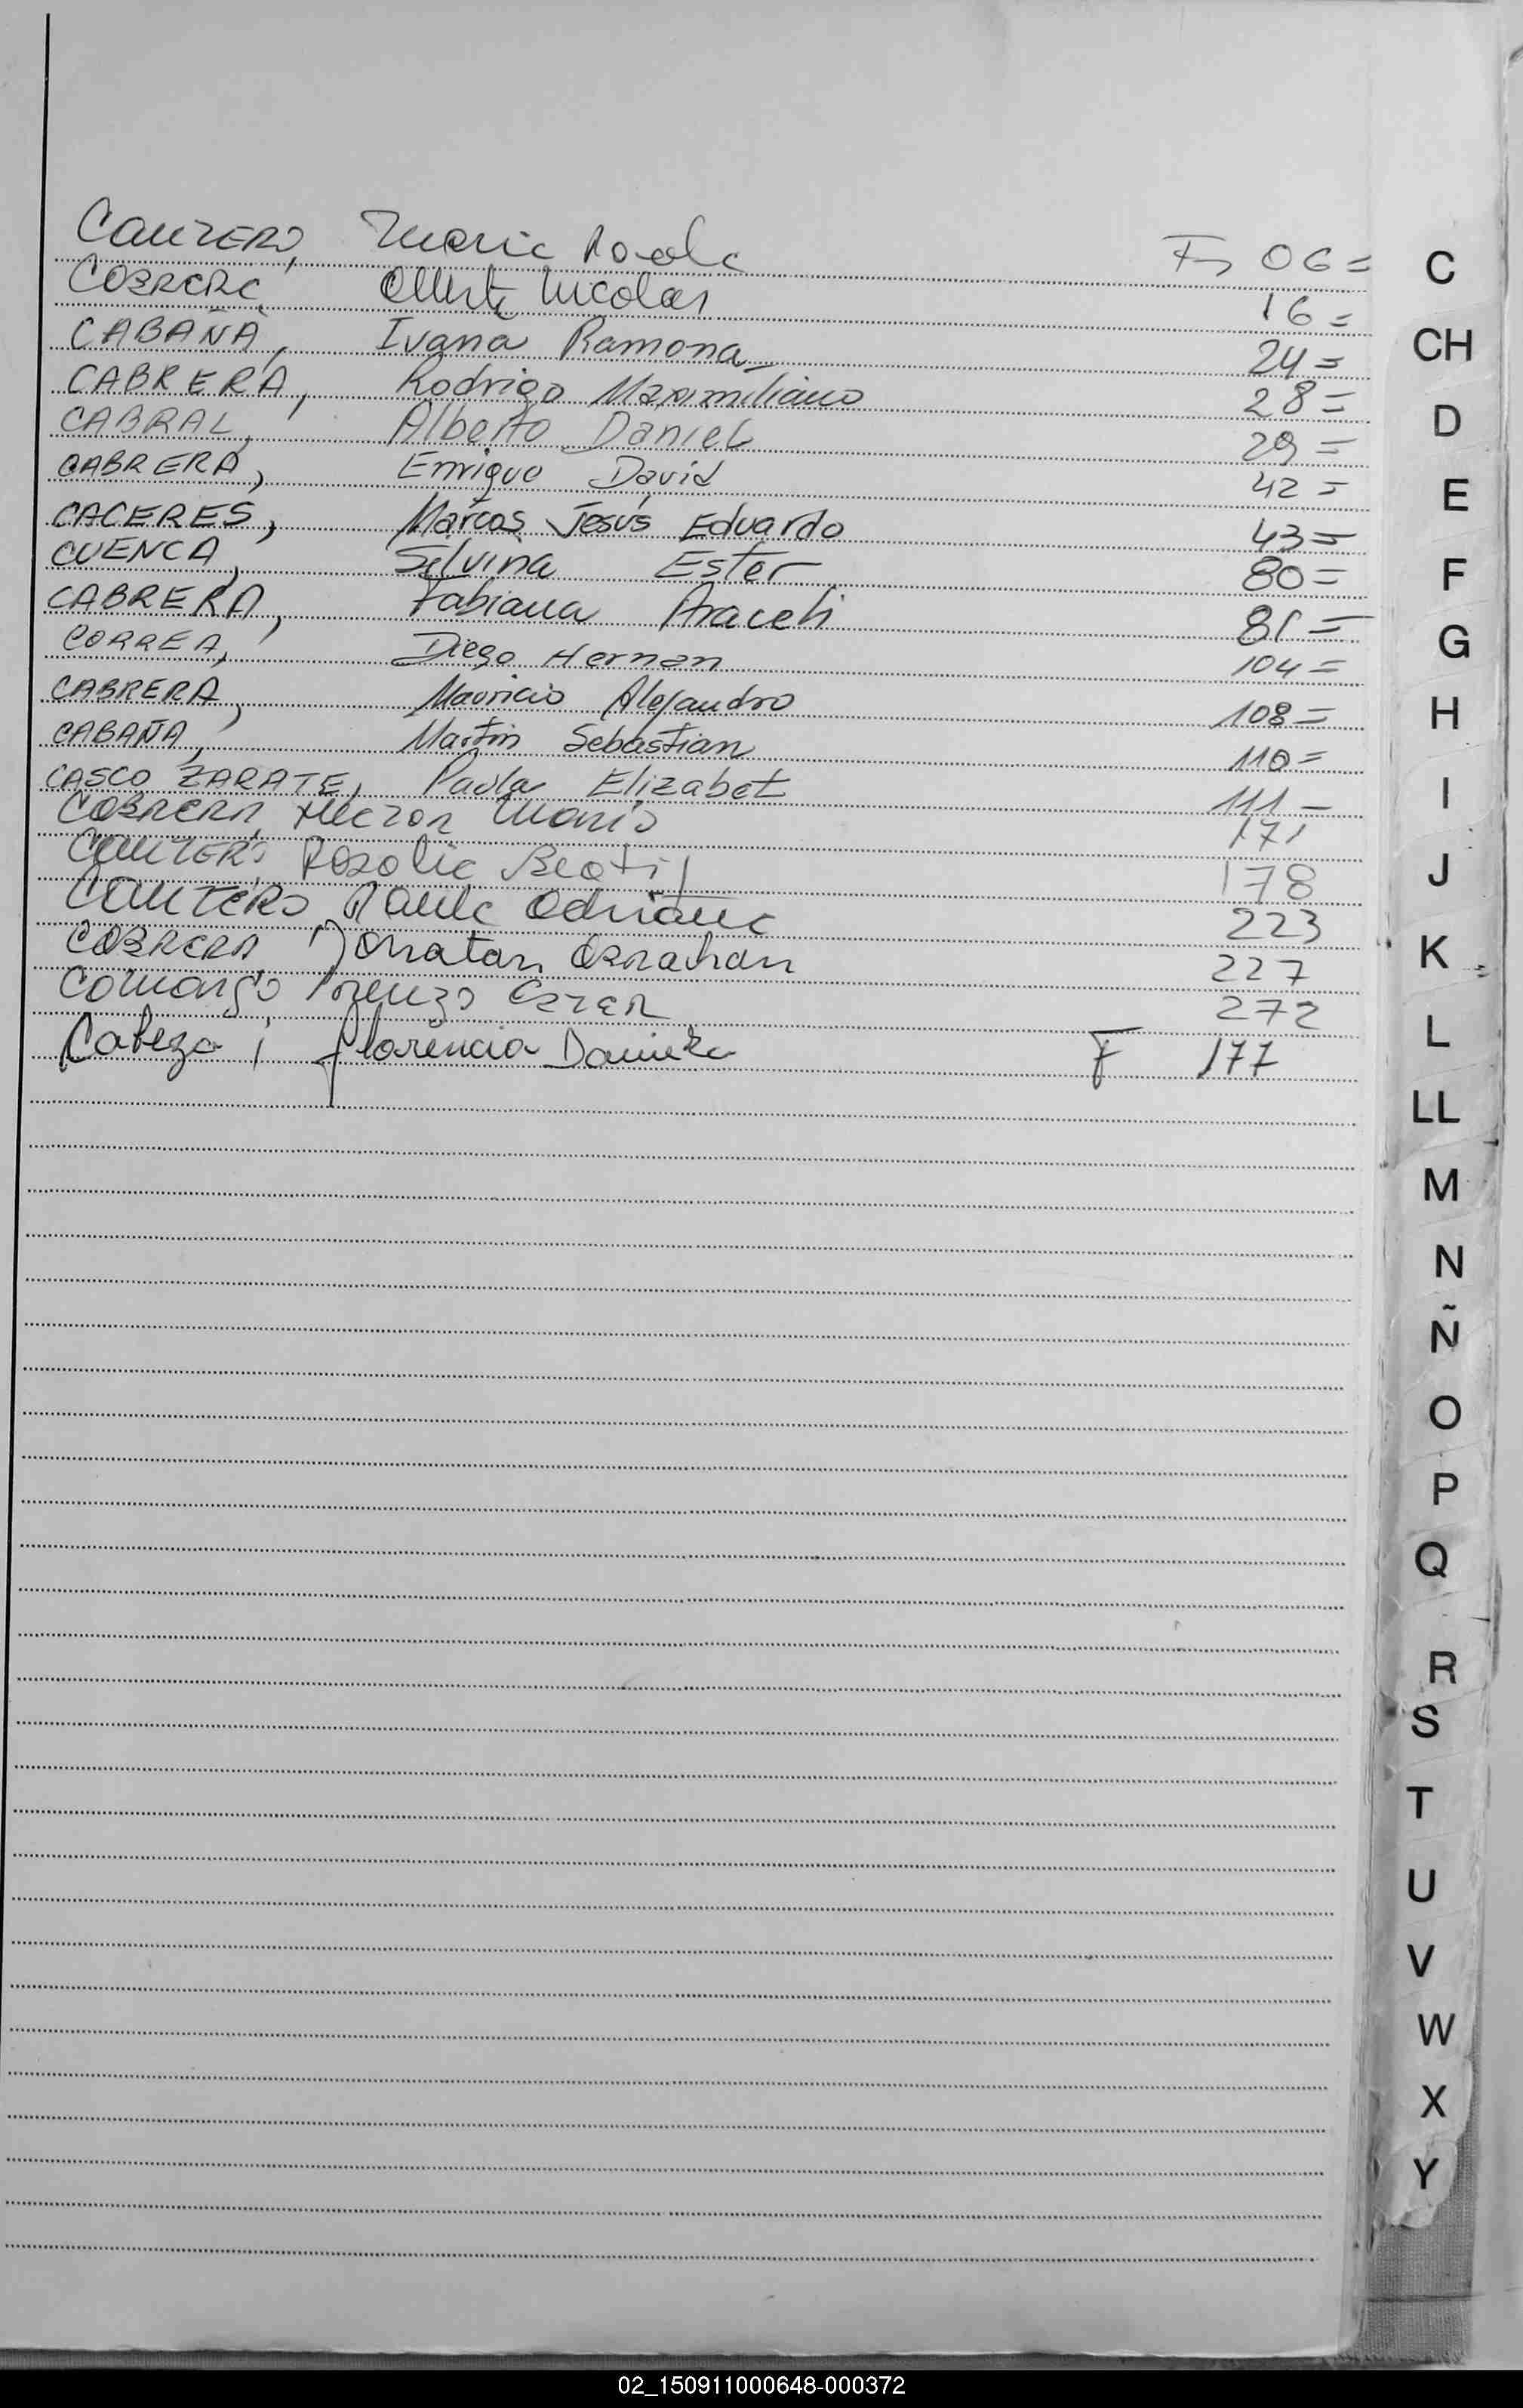 CANTERO, Maria Paola Fº 06=
CABRERA, Alberto Nicolas 16=
CABAÑA, Ivana Ramona 24=
CABRERA, Rodrigo Maximiliano 28=
CABRAL, Alberto Daniel 29=
CABRERA, Enrique David 42=
CACERES, Marcos Jesús Eduardo 43=
CUENCA, Silvina Ester 80=
CABRERA, Fabiana Araceli 81=
CORREA, Diego Hernan 104=
CABRERA, Mauricio Alejandro 108=
CABAÑA, Martin Sebastian 110=
CASCO ZARATE, Paola Elizabet 111=
CABRERA, Hector Mario 171
CANTERO, Rosalia Beatriz 178
CANTERO, Paula Adriana 223
CABRERA, Jonatan 227
Camargo, Lorenzo 272
Cabeza, Florencia Daniela F 177
C
CH
D
E
F
G
H
I
J
K
L
LL
M
N
Ñ
O
P
Q
R
S
T
U
V
W
X
Y
02_150911000648-000372